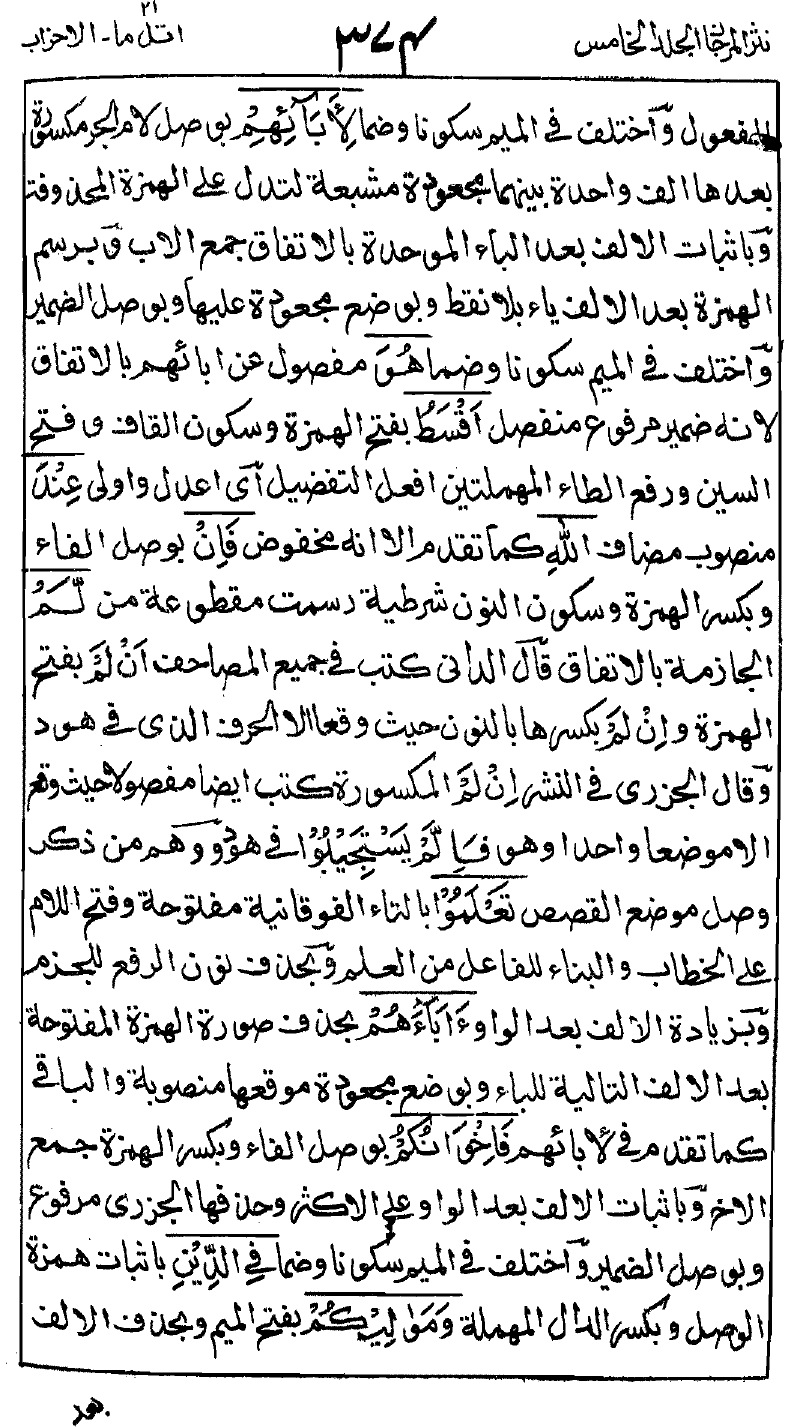 نثر المرجان المجلد الخامس
٣٧٤
٢١
اتل ما - الاحزاب
المفعول وَّاختلف في الميم سكونا وضما لِأَبَآئِهِمْ بوصل لام الجر مكسورة
بعدها الف واحدة بينهما مجعودة مشبعة لتدل على الهمزة المحذوفة
وَّباثبات الالف بعد الباء الموحدة بالاتفاق جمع الاب وَّبرسم
الهمزة بعد الالف ياء بلا نقط وبوضع مجعودة عليها وبوصل الضمير
وَّاختلف في الميم سكونا وضما هُوَ مفصول عن ابائهم بالاتفاق
لانه ضمير مرفوع منفصل اَقْسَطُ بفتح الهمزة وسكون القاف وفتح
السين ورفع الطاء المهملتين افعل التفضيل اَّى اعدل واولى عِنْدَ
منصوب مضاف اللهِ كما تقدم الا انه مخفوض فَإِنْ بوصل الفاء
وبكسر الهمزة وسكون النون شرطية رسمت مقطوعة من لَّمْ
الجازمة بالاتفاق قال الداني كتب في جميع المصاحف اَنْ لَّمْ بفتح
الهمزة وإِنْ لَّمْ بكسرها بالنون حيث وقعا الا الحرف الذى في هود
وَّقال الجزرى في النشر اِنْ لَّمْ المكسورة كتب ايضا مفصولا حيث وقع
الا موضعا واحدا وهو فَاِ لَّمْ يَسْتَجِيْبُوْا في هود ووهم من ذكر
وصل موضع القصص تَعْلَمُوْا بالتاء الفوقانية مفتوحة وفتح اللام
على الخطاب والبناء للفاعل من العلم وَّبحذف نون الرفع للجزم
وَّبزيادة الالف بعد الواو ءَابَآءَهُمْ بحذف صورة الهمزة المفتوحة
بعد الالف التالية للباء وبوضع مجعودة موقعها منصوبة والباقي
كما تقدم في لأبائهم فَاِخْوَانُكُمْ بوصل الفاء وبكسر الهمزة جمع
الاخ وَّباثبات الالف بعد الواو على الاكثر وحذفها الجزرى مرفوع
وبوصل الضمير وَّاختلف في الميم سكونا وضما فِي الدِّيْنِ باثبات همزة
الوصل وبكسر الدال المهملة وَمَوَالِيْكُمْ بفتح الميم وبحذف الالف
بعد